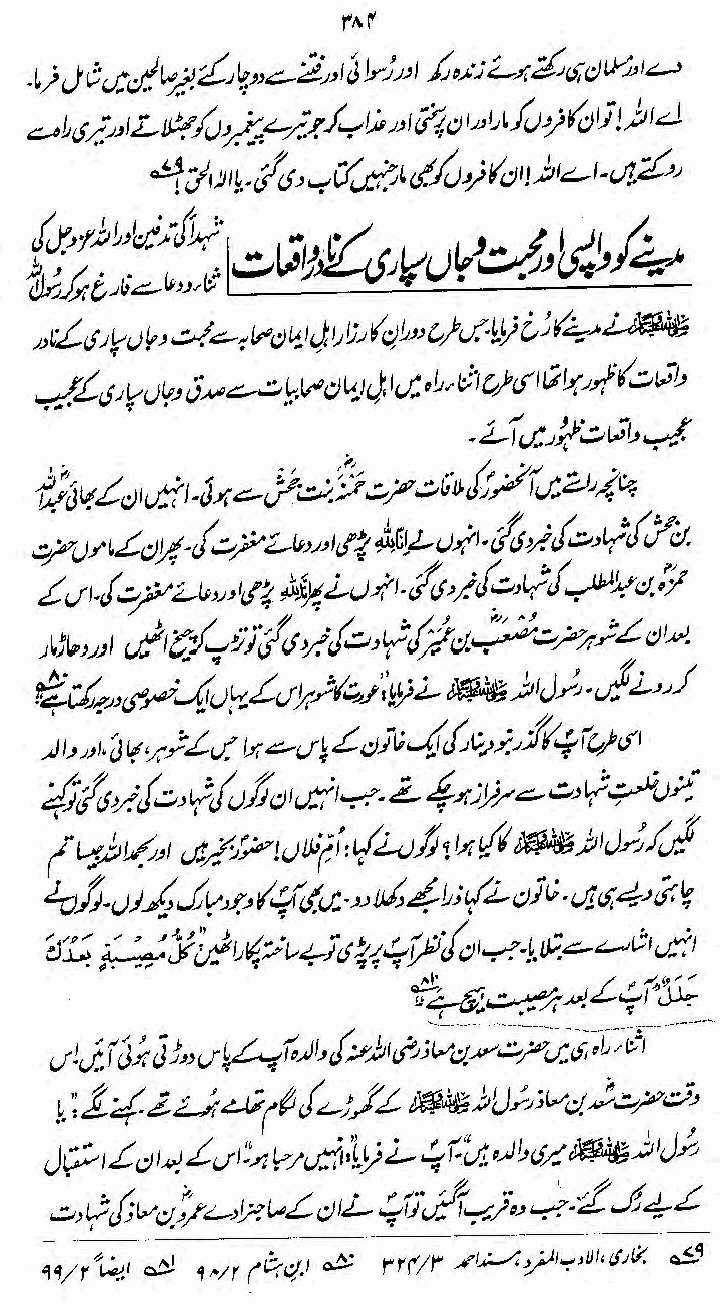 ۳۸۴
دے اور مسلمان ہی رکھتے ہوئے زندہ رکھ اور رُسوائی اور فتنے سے دوچار کئے بغیر صالحین میں شامل فرما۔
اے اللہ! تو ان کافروں کو مار اور ان پر سختی اور عذاب کر جو تیرے پیغمبروں کو جھٹلاتے اور تیری راہ سے
روکتے ہیں۔ اے اللہ! ان کافروں کو بھی مار جنہیں کتاب دی گئی۔ یا الٰہ الحق! ۷۹
مدینے کو واپسی اور محبت و جاں سپاری کے نادر واقعات
شہدأ کی تدفین اور اللہ عز و جل کی
ثناء و دعا سے فارغ ہو کر رسول اللہ
ﷺ نے مدینے کا رُخ فرمایا۔ جس طرح دورانِ کارزار اہلِ ایمان صحابہ سے محبت و جاں سپاری کے نادر
واقعات کا ظہور ہوا تھا اسی طرح اثناء راہ میں اہلِ ایمان صحابیات سے صدق و جاں سپاری کے عجیب
عجیب واقعات ظہور میں آئے۔
چنانچہ راستے میں آنحضورؐ کی ملاقات حضرت حَمنہؓ بنت جحش سے ہوئی۔ انہیں ان کے بھائی عبداللہؓ
بن جحش کی شہادت کی خبر دی گئی۔ انہوں نے اناللہ پڑھی اور دعائے مغفرت کی۔ پھر ان کے ماموں حضرت
حمزہؓ بن عبدالمطلب کی شہادت کی خبر دی گئی۔ انہوں نے پھر اناللہ پڑھی اور دعائے مغفرت کی۔ اس کے
بعد ان کے شوہر حضرت مُصْعَبؓ بن عُمیر کی شہادت کی خبر دی گئی تو تڑپ کر چیخ اٹھیں اور دھاڑ مار
کر رونے لگیں۔ رسُول اللہ ﷺ نے فرمایا: "عورت کا شوہر اس کے یہاں ایک خصوصی درجہ رکھتا ہے"۔ ۸۰
اسی طرح آپؐ کا گذر بنو دینار کی ایک خاتون کے پاس سے ہوا جس کے شوہر، بھائی، اور والد
تینوں خلعتِ شہادت سے سرفراز ہو چکے تھے۔ جب انہیں ان لوگوں کی شہادت کی خبر دی گئی تو کہنے
لگیں کہ رسُول اللہ ﷺ کا کیا ہوا؟ لوگوں نے کہا: اُمِّ فلاں! حضورؐ بخیر ہیں اور بحمداللہ جیسا تم
چاہتی ہو ویسے ہی ہیں۔ خاتون نے کہا ذرا مجھے دکھلا دو۔ میں بھی آپؐ کا وجود مبارک دیکھ لوں۔ لوگوں نے
انہیں اشارے سے بتلایا۔ جب ان کی نظر آپؐ پر پڑی تو بے ساختہ پکار اٹھیں "کُلُّ مُصِیْبَۃٍ بَعْدَکَ
جَلَلٌ" آپؐ کے بعد ہر مصیبت ہیچ ہے"۔ ۸۱
اثناء راہ ہی میں حضرت سعد بن معاذ رضی اللہ عنہ کی والدہ آپؐ کے پاس دوڑتی ہُوئی آئیں۔ اس
وقت حضرت سعدؓ بن معاذ رسُول اللہ ﷺ کے گھوڑے کی لگام تھامے ہُوئے تھے۔ کہنے لگے: "یا
رسُول اللہ ﷺ میری والدہ ہیں"۔ آپؐ نے فرمایا: "انہیں مرحبا ہو"۔ اس کے بعد ان کے استقبال
کے لیے رُک گئے۔ جب وہ قریب آ گئیں تو آپؐ نے ان کے صاحبزادے عمروؓ بن معاذ کی شہادت
۷۹ بخاری، الادب المفرد، مسند احمد ۳۲۴/۳ ۸۰ ابن ہشام ۹۸/۲ ۸۱ ایضاً ۹۹/۲